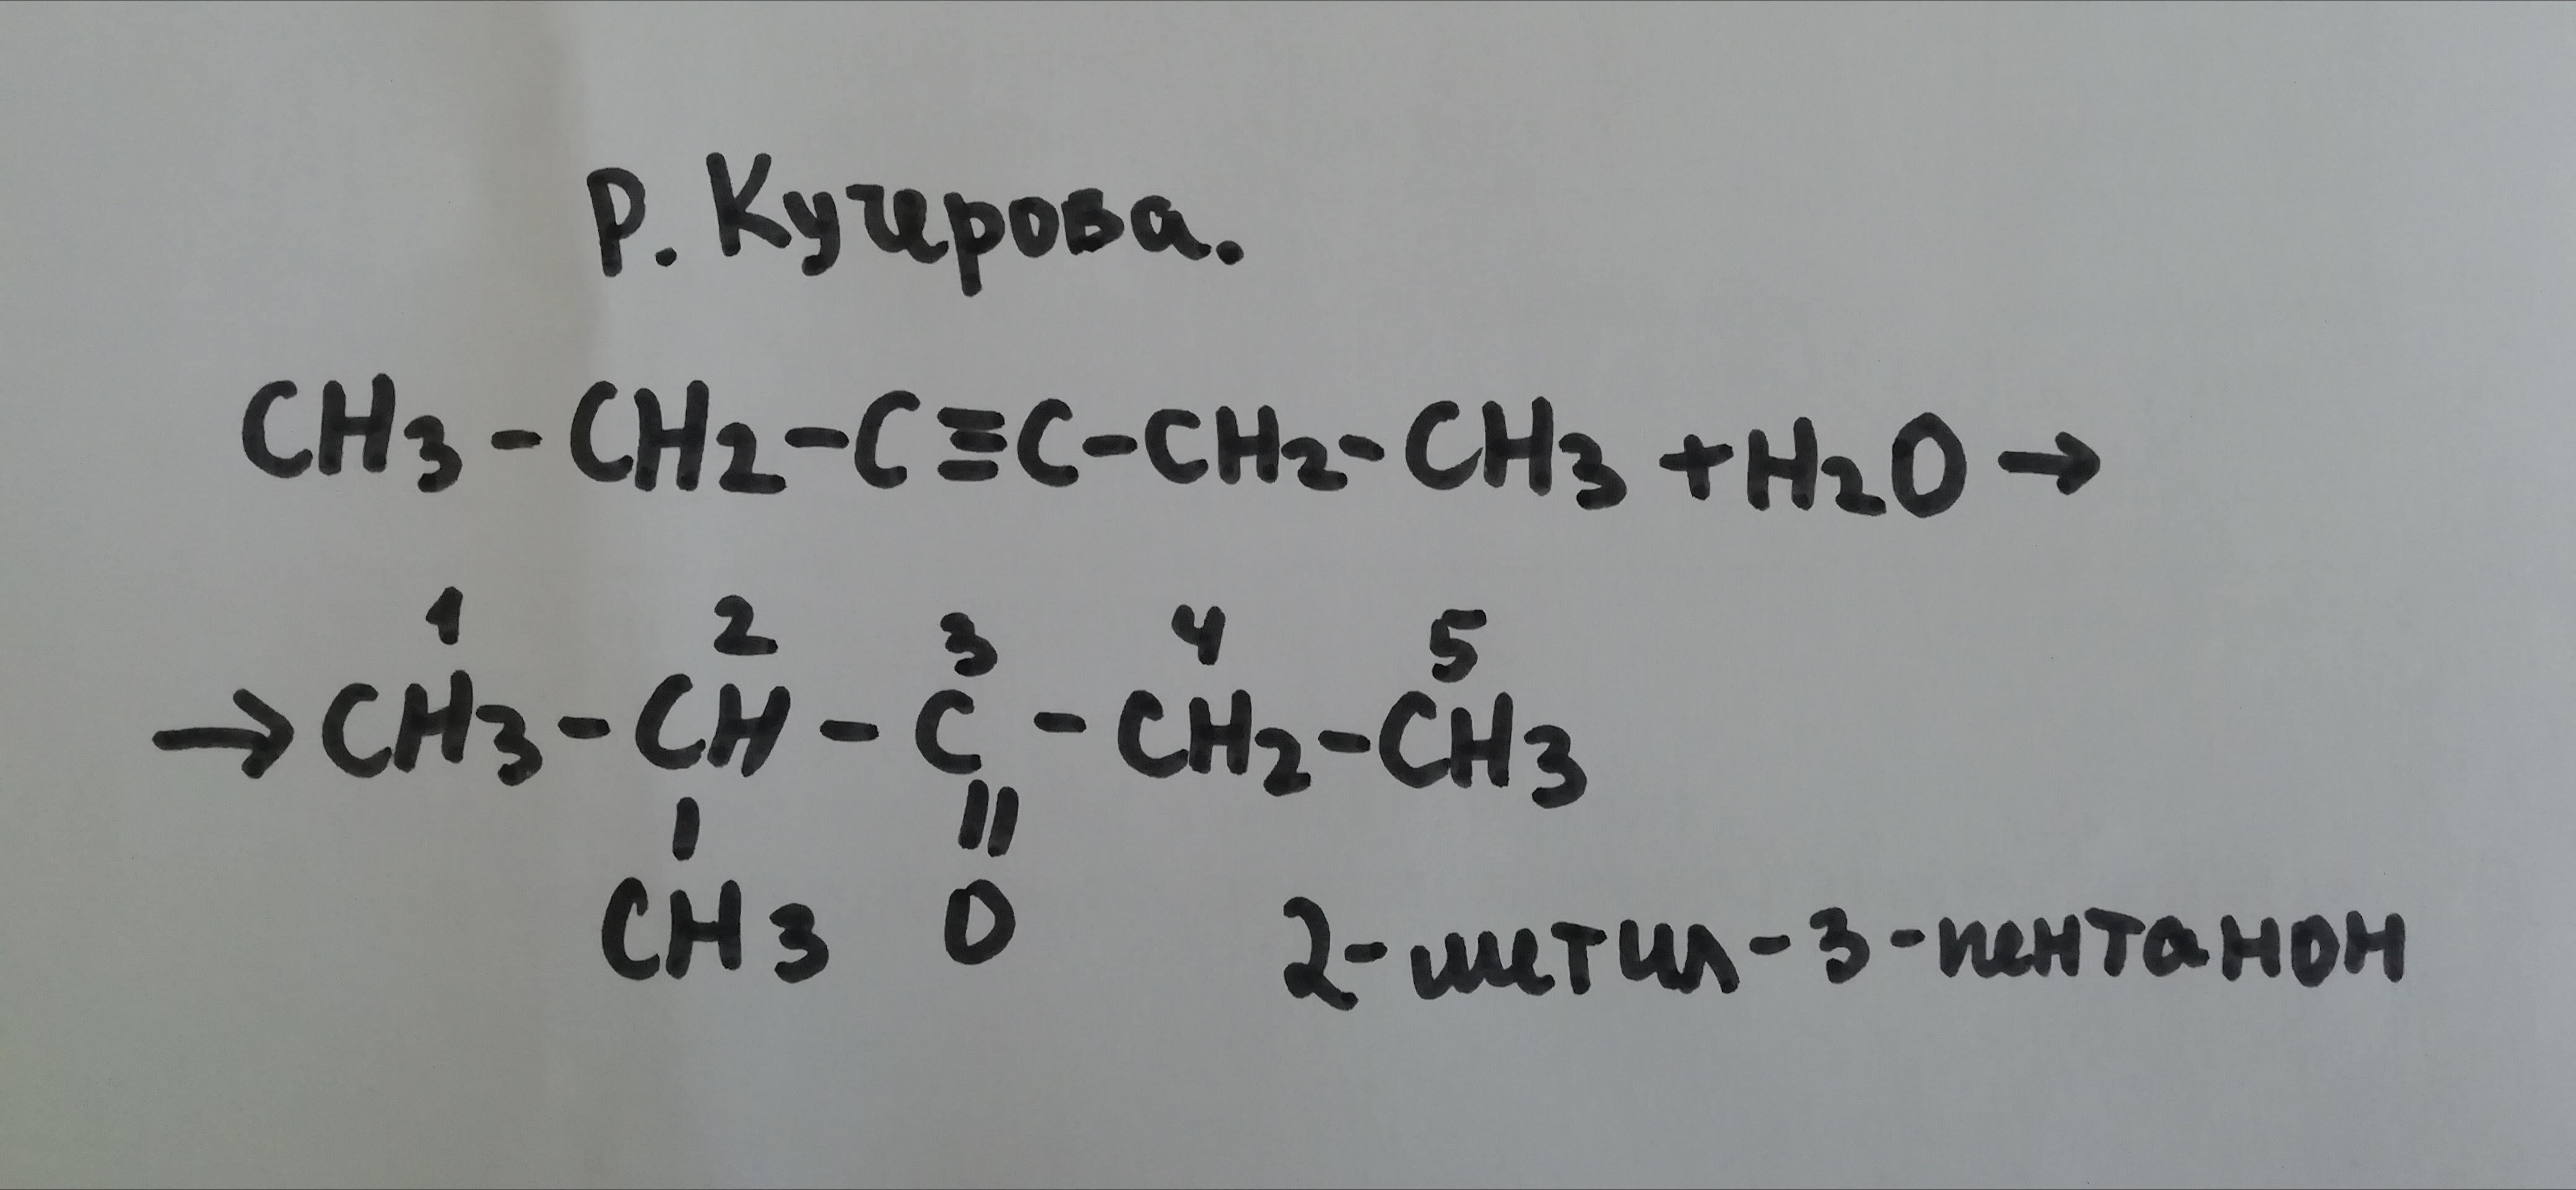 Р. Кучерова.
CH3 - CH2 - C ≡ C - CH2 - CH3 + H2O →
1 2 3 4 5
→ CH3 - CH - C - CH2 - CH3
| ||
CH3 O 2-метил-3-пентанон